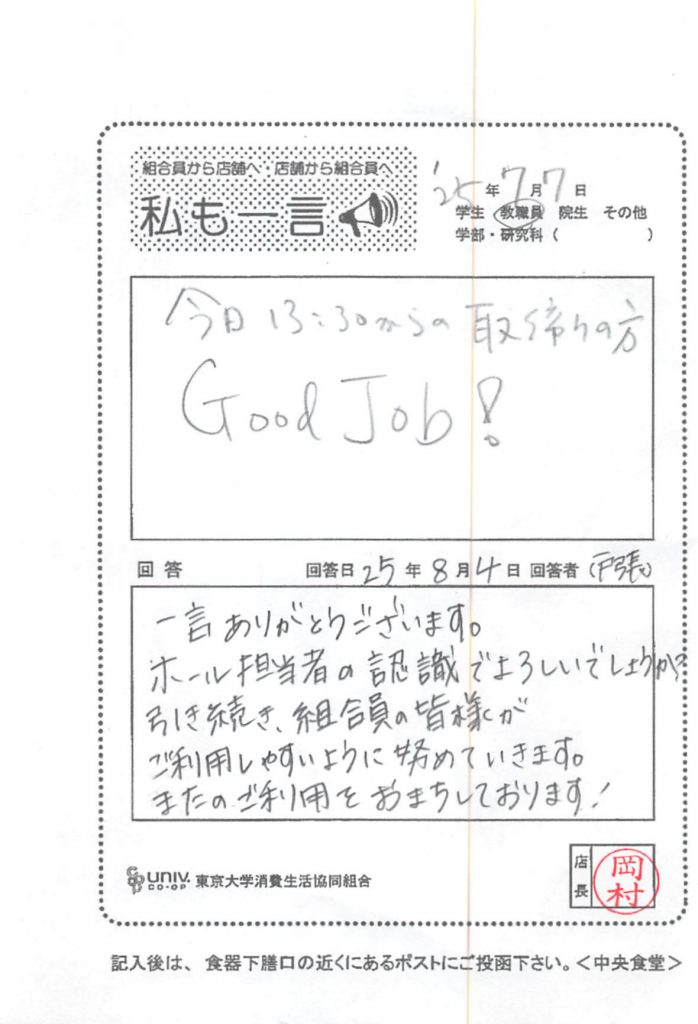 組合員から店舗へ・店舗から組合員へ
私も一言
'25 年 7 月 7 日
学生 教職員 院生 その他
学部・研究科 ( )
今日 13:30からの 取締りの方
Good Job!
回答 回答日 25 年 8 月 4 日 回答者 (戸張)
一言ありがとうございます。
ホール担当者の認識でよろしいでしょうか?
引き続き、組合員の皆様が
ご利用しやすいように努めていきます。
またのご利用をおまちしております!
UNIV. CO-OP 東京大学消費生活協同組合
店長 岡村
記入後は、食器下膳口の近くにあるポストにご投函下さい。<中央食堂>